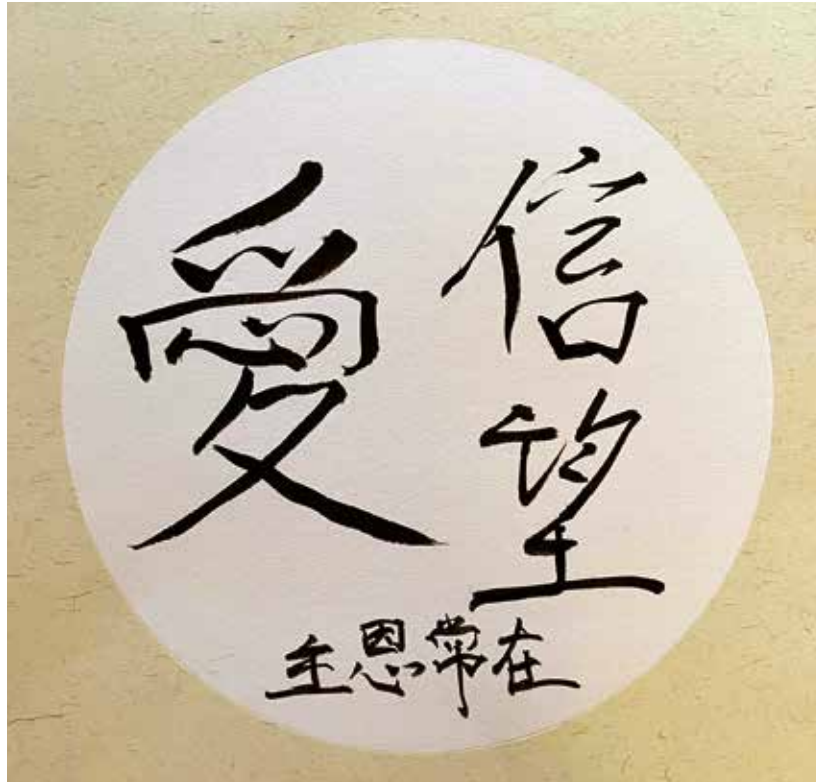 信望
愛
主恩常在